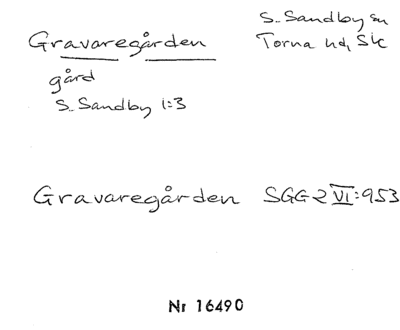 Gravaregården
S. Sandby sn
Torna hd, Sk
gård
S. Sandby 1:3
Gravaregården SGG 2 VI:953
Nr 16490